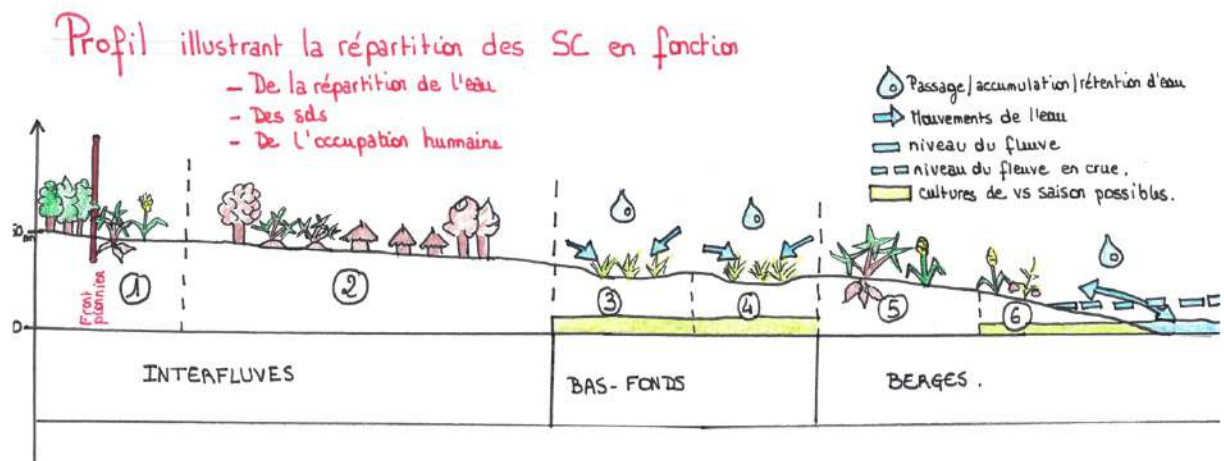 Profil illustrant la répartition des SC en fonction
- De la répartition de l'eau
- Des sols
- De l'occupation humaine
Passage/accumulation/rétention d'eau
Mouvements de l'eau
niveau du fleuve
niveau du fleuve en crue.
cultures de vs saison possibles.
50
m
0
Front pionnier
1
2
3
4
5
6
INTERFLUVES
BAS-FONDS
BERGES.